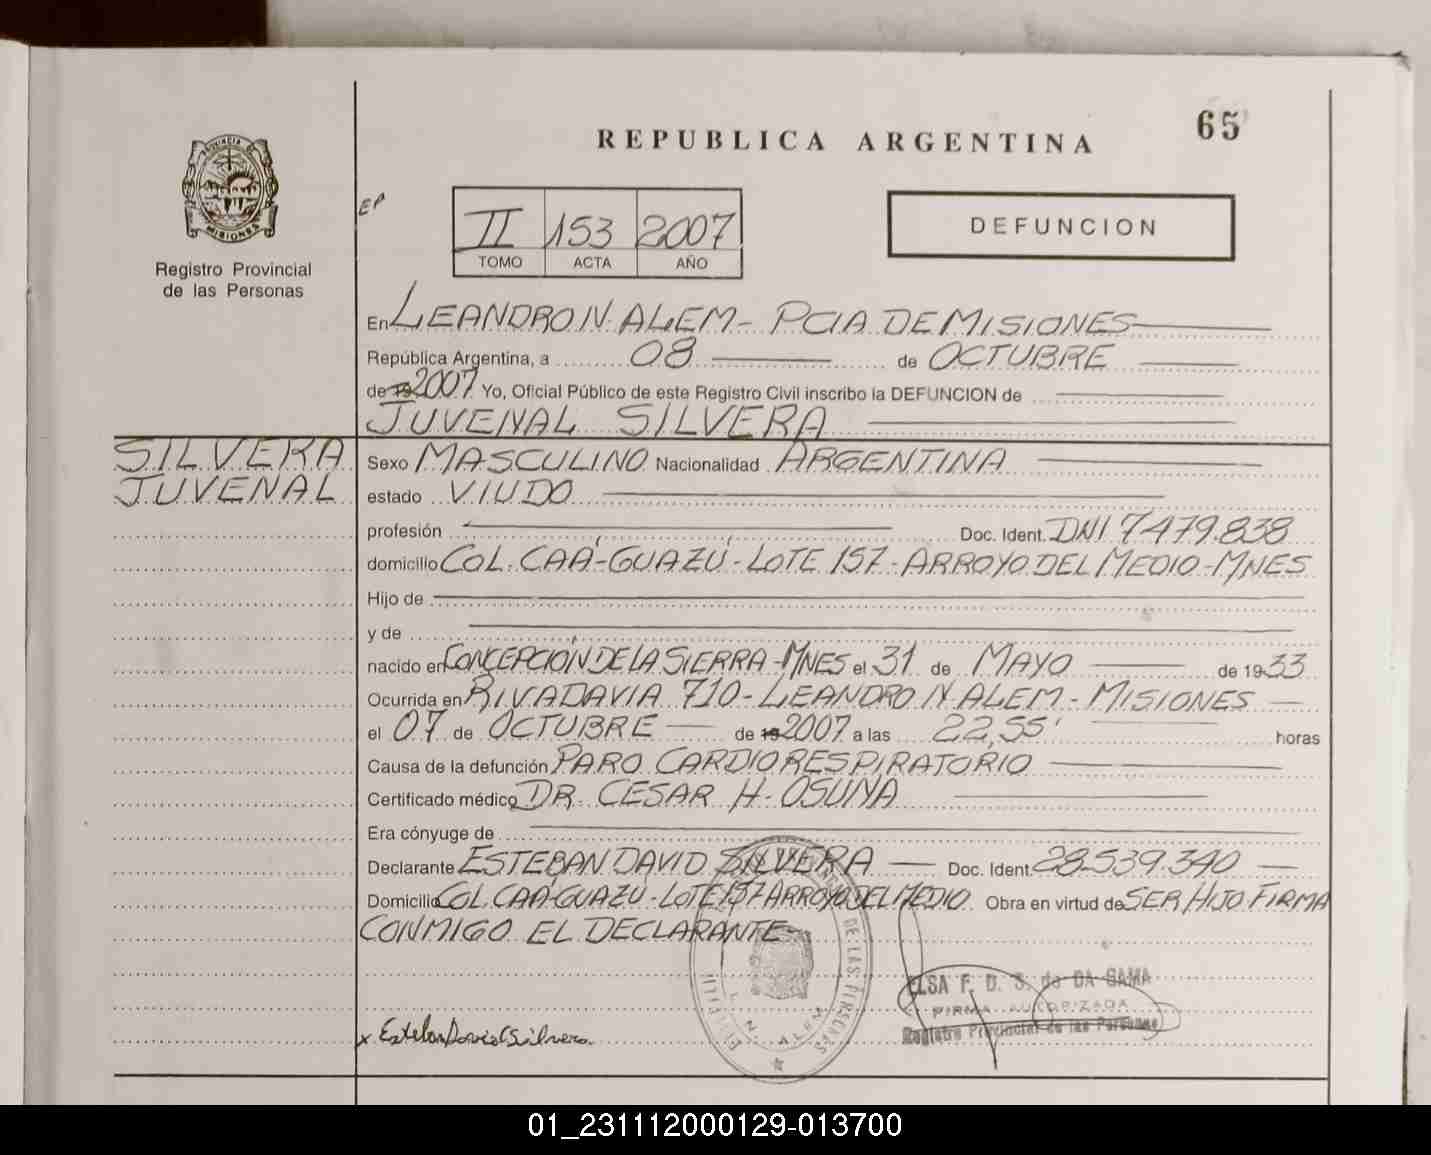 65
REPUBLICA ARGENTINA
PROVINCIA DE
MISIONES
Registro Provincial
de las Personas
EP
II 153 2007
TOMO ACTA AÑO
DEFUNCION
En LEANDRO N. ALEM - PCIA DE MISIONES
República Argentina, a 08 de OCTUBRE
de 19 2007 Yo, Oficial Público de este Registro Civil inscribo la DEFUNCION de
JUVENAL SILVERA
SILVERA
JUVENAL
Sexo MASCULINO Nacionalidad ARGENTINA
estado VIUDO
profesión Doc. Ident. DNI 7479.838
domicilio COL. CAÁ-GUAZÚ - LOTE 157 - ARROYO DEL MEDIO - MNES
Hijo de
y de
nacido en CONCEPCIÓN DE LA SIERRA - MNES el 31 de MAYO de 19 33
Ocurrida en RIVADAVIA 710 - LEANDRO N ALEM - MISIONES
el 07 de OCTUBRE de 19 2007 a las 22,55' horas
Causa de la defunción PARO CARDIORESPIRATORIO
Certificado médico DR. CESAR H. OSUNA
Era cónyuge de
Declarante ESTEBAN DAVID SILVERA Doc. Ident. 28.539.340
Domicilio COL. CAÁ-GUAZÚ - LOTE 157 ARROYO DEL MEDIO Obra en virtud de SER HIJO FIRMA
CONMIGO EL DECLARANTE -
DE LAS PERSONAS
L. N. ALEM
ELSA F. D. S. de DA GAMA
FIRMA AUTORIZADA
Registro Provincial de las Personas
x Esteban David Silvera
01_231112000129-013700